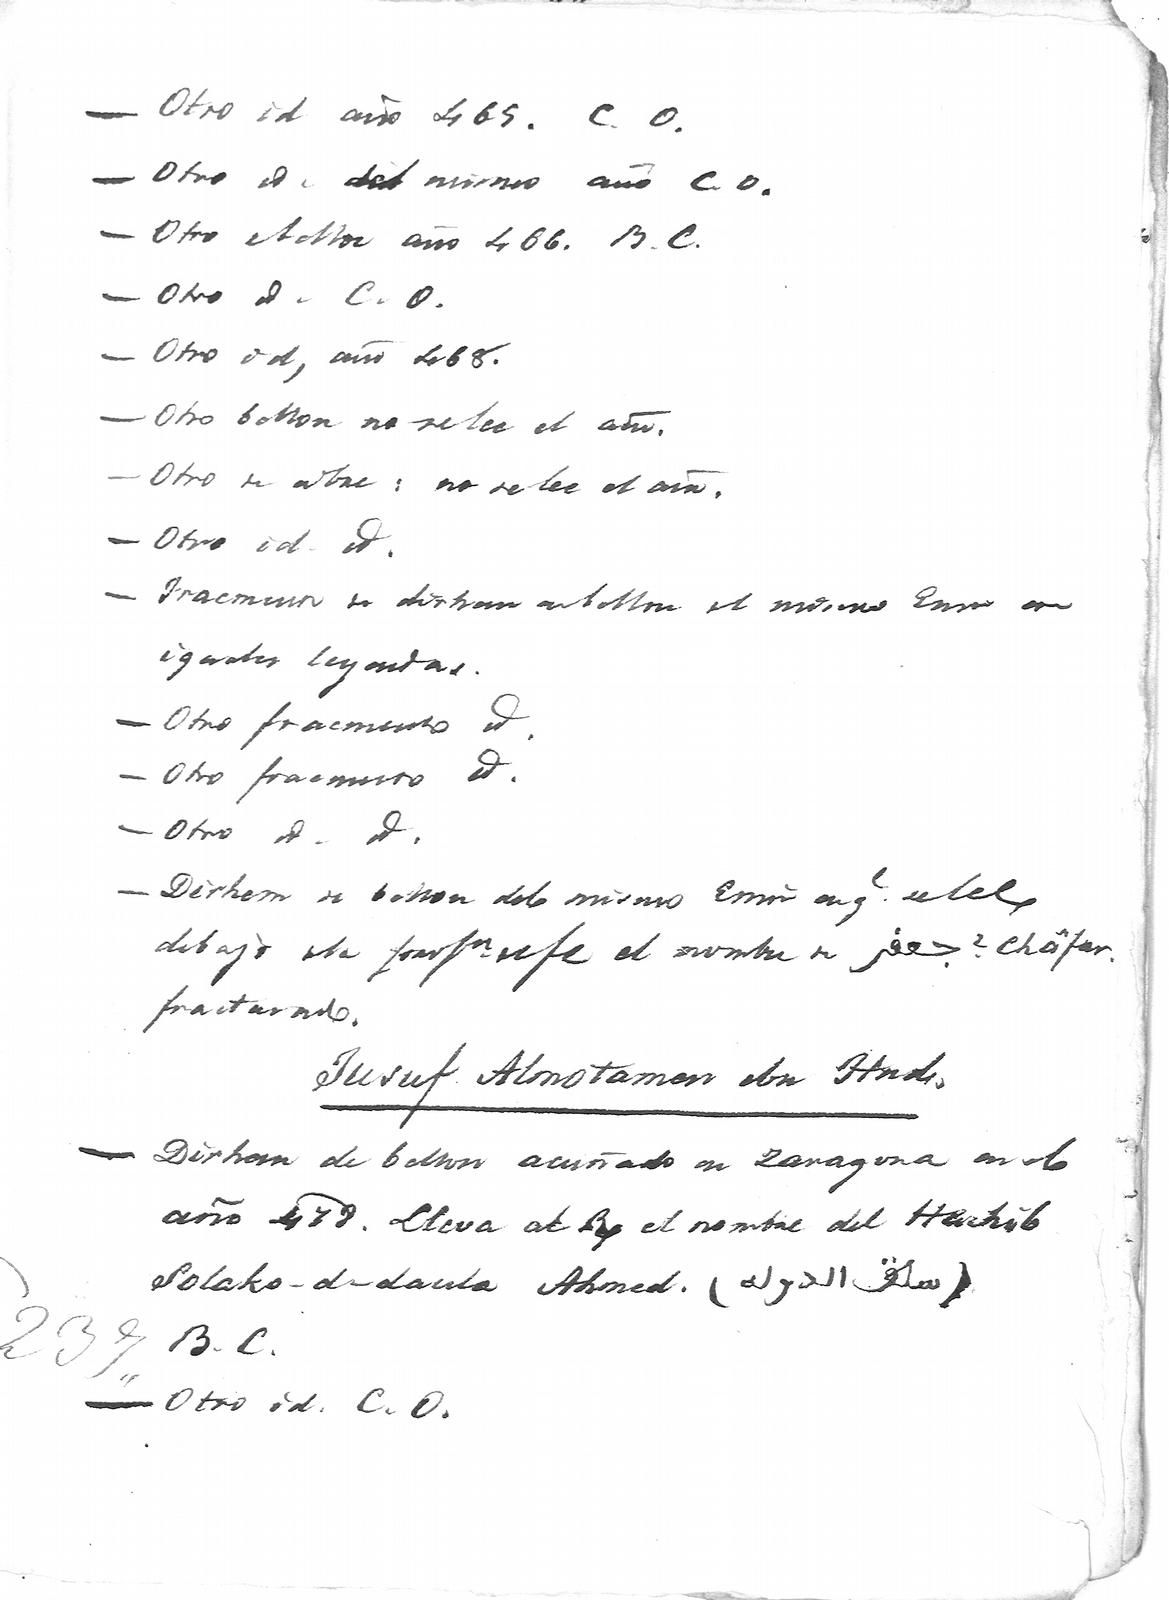 — Otro id año 465. C. O.
— Otro id. del mismo año C. O.
— Otro vellon año 466. B. C.
— Otro id. C. O.
— Otro id, año 468.
— Otro bellon no se lee el año.
— Otro de cobre: no se lee el año.
— Otro id. id.
— Fracmento de dirhem de bellon del mismo Emir con
iguales leyendas.
— Otro fracmento id.
— Otro fracmento id.
— Otro id. id.
— Dirhem de bellon del mismo Emir en q.e se lee
debajo de la el nombre de جعفر? Châfar.
fracturado.
Jusuf Almotamen ebn Hud.
— Dirhem de bellon acuñado en Zaragoza en el
año 478. Lleva al R/ el nombre del Hachib
Solako-d-daula Ahmed. (سلق الدولة)
237,, B. C.
— Otro id. C. O.